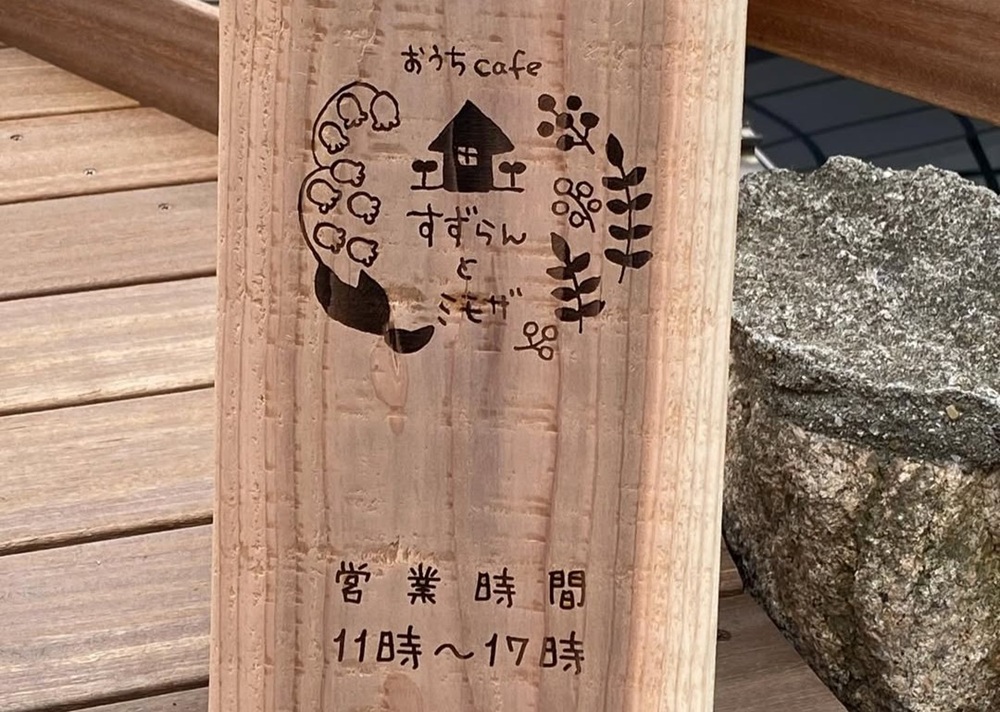 おうちcafe
すずらん
と
ミモザ
営業時間
11時～17時